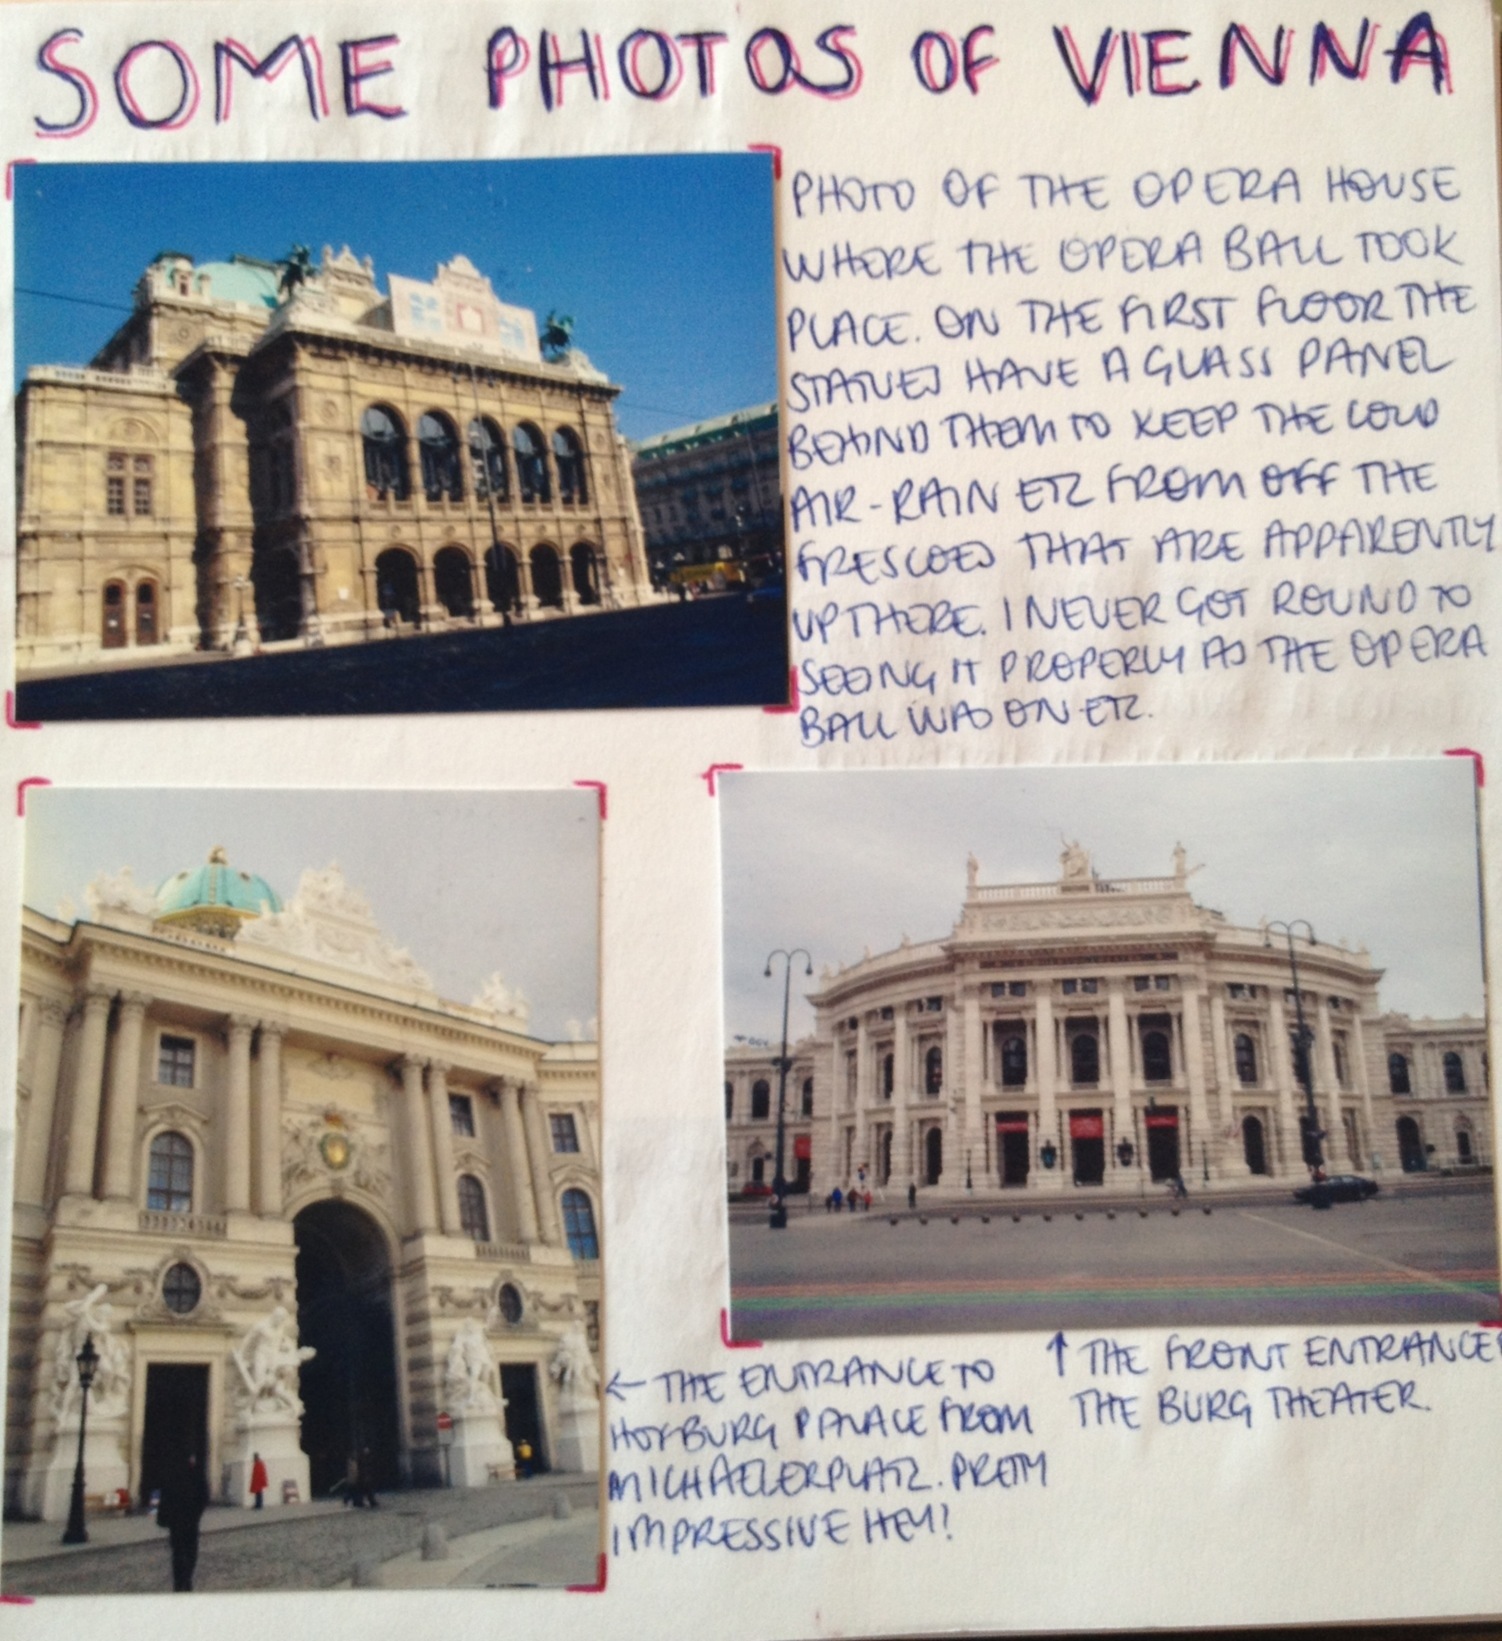 SOME PHOTOS OF VIENNA
PHOTO OF THE OPERA HOUSE
WHERE THE OPERA BALL TOOK
PLACE. ON THE FIRST FLOOR THE
STATUES HAVE A GLASS PANEL
BEHIND THEM TO KEEP THE COLD
AIR-RAIN ETC FROM OFF THE
FRESCOES THAT ARE APPARENTLY
UP THERE. I NEVER GOT ROUND TO
SEEING IT PROPERLY AS THE OPERA
BALL WAS ON ETC.
← THE ENTRANCE TO
HOFBURG PALACE FROM
MICHAELERPLATZ. PRETTY
IMPRESSIVE HEY!
↑ THE FRONT ENTRANCE
THE BURG THEATER.